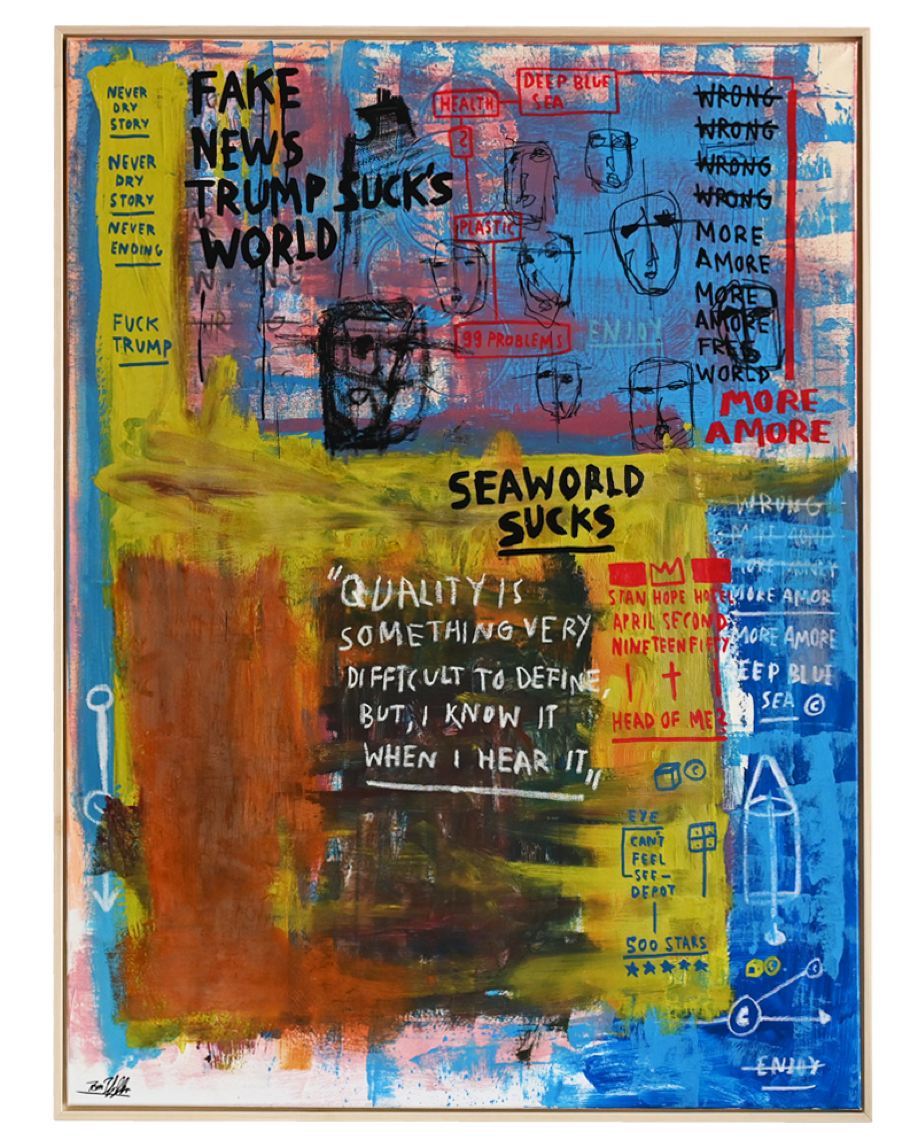 NEVER
DRY
STORY
NEVER
DRY
STORY
NEVER
ENDING
FUCK
TRUMP
FAKE
NEWS
TRUMP SUCK'S
WORLD
HEALTH
DEEP BLUE
SEA
?
PLASTIC
99 PROBLEMS
ENJOY
WRONG
WRONG
WRONG
WRONG
MORE
AMORE
MORE
AMORE
FREE
WORLD
MORE
AMORE
SEAWORLD
SUCKS
"QUALITY IS
SOMETHING VERY
DIFFICULT TO DEFINE,
BUT, I KNOW IT
WHEN I HEAR IT"
STAN HOPE HOTEL
APRIL SECOND
NINETEENFIFTY
HEAD OF ME?
WRONG
MORE AMOR
MORE AMORE
DEEP BLUE
SEA ©
©
EYE
CAN'T
FEEL
SEE-
DEPOT
500 STARS
★★★★★
©
C
ENJOY